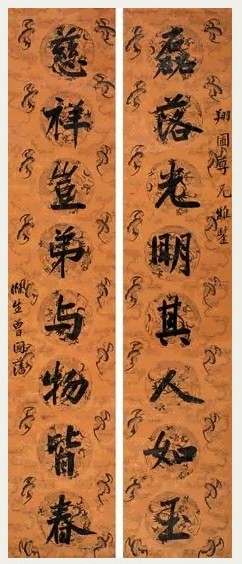 翔圃尊兄雅鑒
磊落光明其人如玉
慈祥豈弟与物皆春
滌生曾國藩